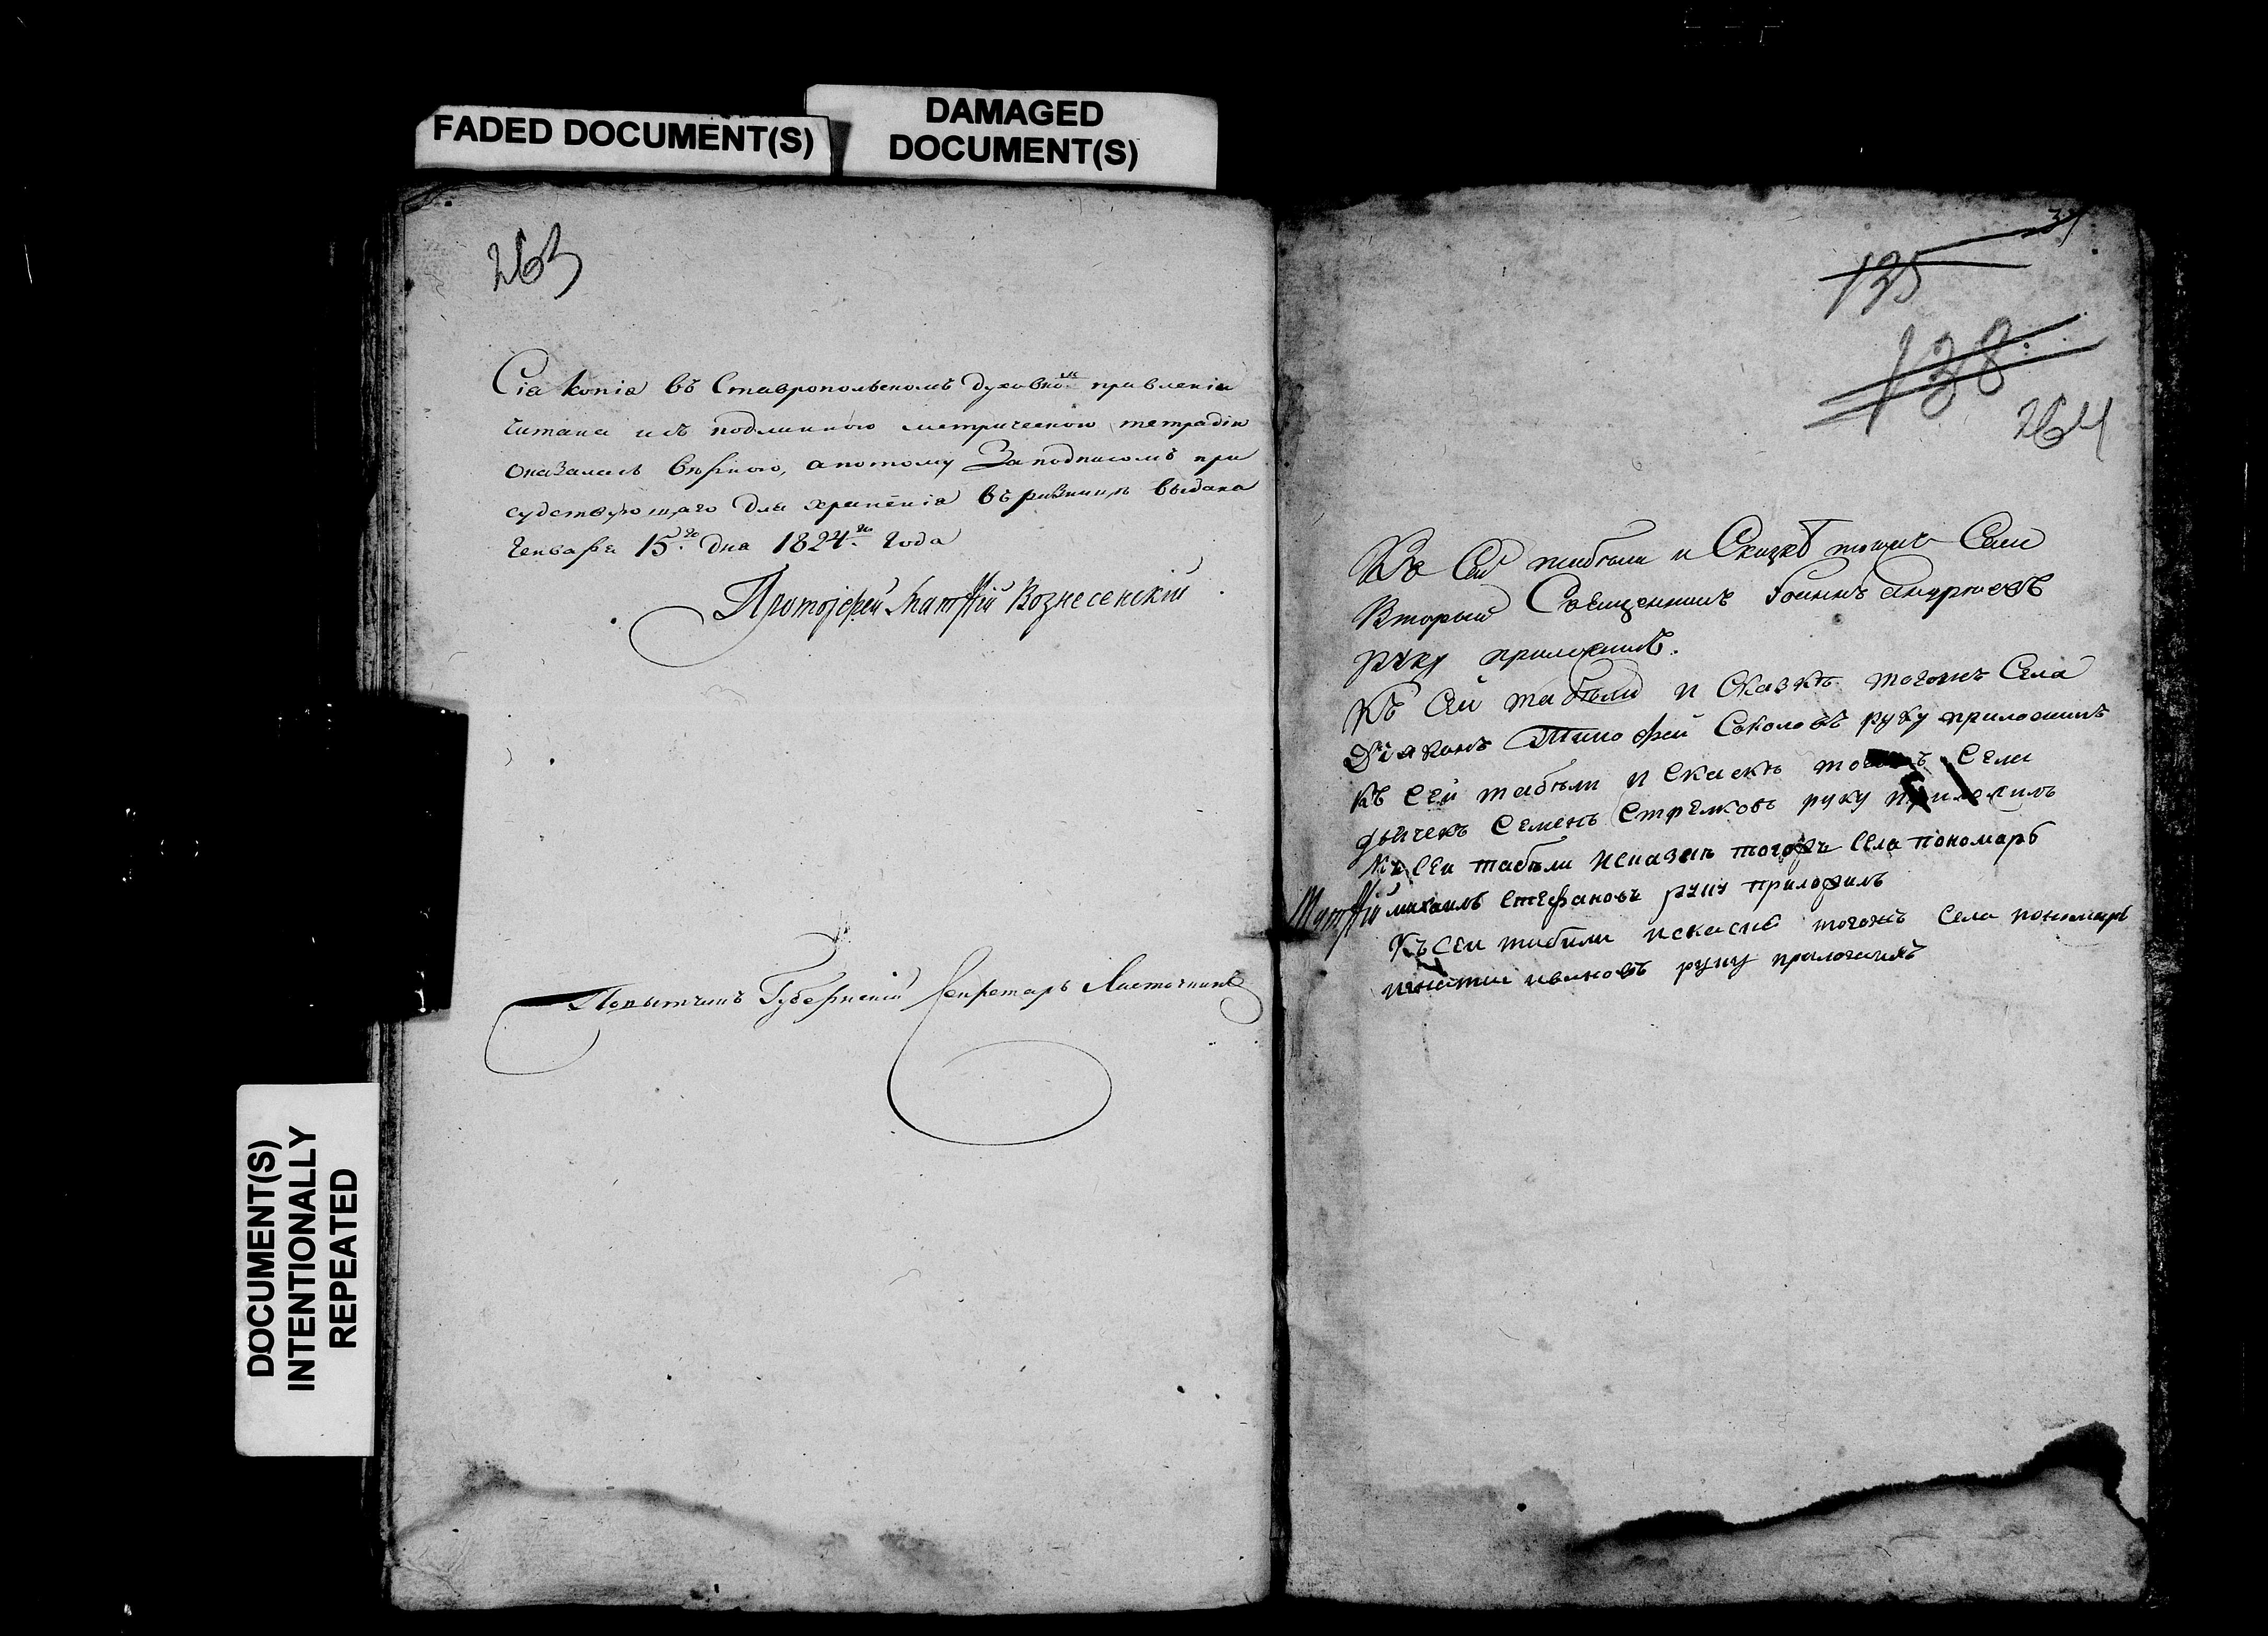 FADED DOCUMENT(S)
DAMAGED
DOCUMENT(S)
DOCUMENT(S)
INTENTIONALLY
REPEATED
263
Сія копія въ Ставропольскомъ духовномъ правленіи
читана и съ подлинною метрическою тетрадію
оказалась вѣрною, а потому За подписомъ при
судствующаго для храненія въ ризницѣ выдана
Генваря 15го дня 1824го года
Протоіерей Матѳій Вознесенскій
Повытчикъ Губернскій Секретарь Ласточкинъ
37
135
138
264
Къ Сей табѣли и Сказкѣ тогожъ Села
Вторый Священникъ Іоаннъ
руку приложилъ.
Къ Сей табѣли и Сказкѣ тогожъ Села
Діаконъ Тимофей Соколовъ руку приложилъ
къ сей табѣли и скаскѣ Села
дьячекъ Семенъ Стрелковъ руку приложилъ
Къ Сеи табѣли исказкѣ тогожъ Села пономарь
Матѳій михаилъ Стефановъ руку приложилъ
Къ Сеи табѣли искаскѣ тогожъ Села пономарь
игнатий ивановъ руку приложилъ